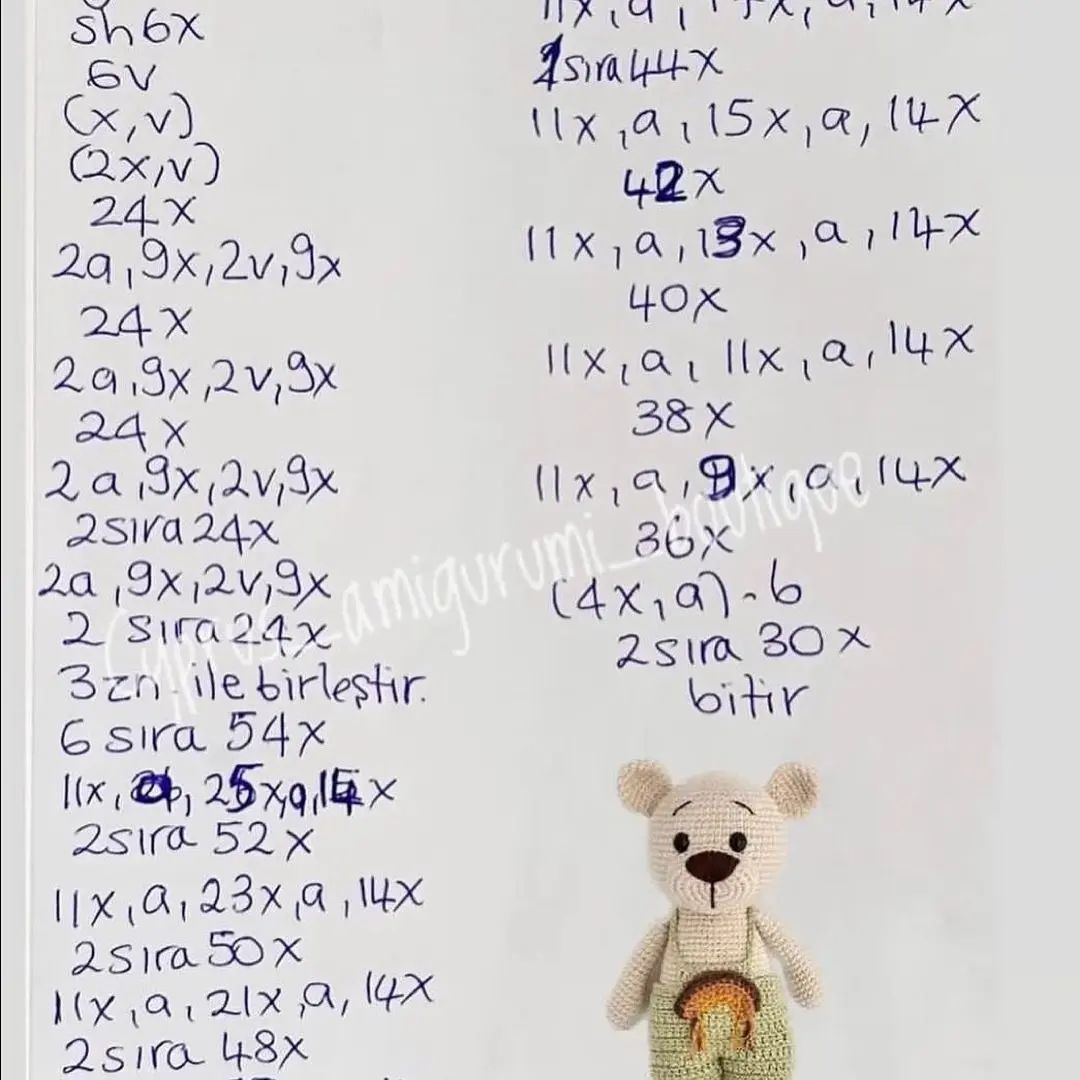 sh 6x
6v
(x,v)
(2x,v)
24x
2a,9x,2v,9x
24x
2a,9x,2v,9x
24x
2a,9x,2v,9x
2sıra 24x
2a,9x,2v,9x
2 sıra 24x
3 zn ile birleştir.
6 sıra 54x
11x, 25x,a,14x
2sıra 52x
11x,a,23x,a,14x
2sıra 50x
11x,a,21x,a,14x
2sıra 48x
1sıra 44x
11x,a,15x,a,14x
42x
11x,a,13x,a,14x
40x
11x,a,11x,a,14x
38x
11x,a,9x,a,14x
36x
(4x,a)-6
2sıra 30x
bitir
Cyprus_amigurumi_boutique